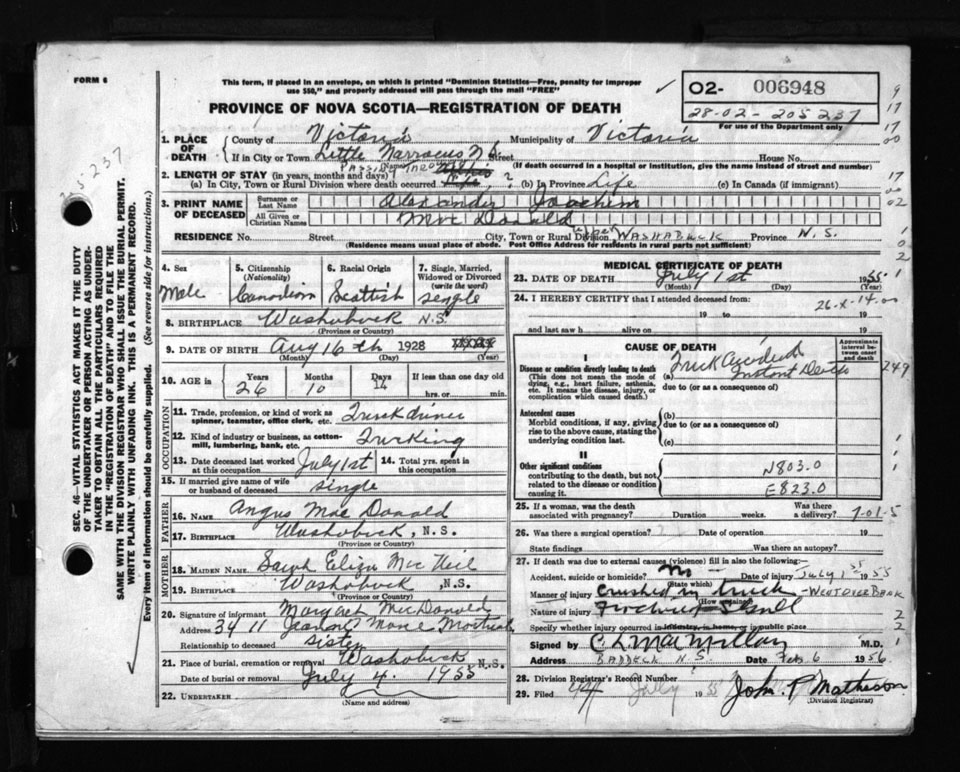 FORM 6
This form, if placed in an envelope, on which is printed "Dominion Statistics—Free, penalty for improper
use $50," and properly addressed will pass through the mail "FREE"
PROVINCE OF NOVA SCOTIA—REGISTRATION OF DEATH
O2- 006948
28-02-205237
For use of the Department only
205237
SEC. 46—VITAL STATISTICS ACT MAKES IT THE DUTY
OF THE UNDERTAKER OR PERSON ACTING AS UNDER-
TAKER TO OBTAIN ALL THE PARTICULARS REQUIRED
IN THE "REGISTRATION OF DEATH" AND TO FILE THE
SAME WITH THE DIVISION REGISTRAR WHO SHALL ISSUE THE BURIAL PERMIT.
WRITE PLAINLY WITH UNFADING INK. THIS IS A PERMANENT RECORD.
Every item of information should be carefully supplied. (See reverse side for instructions.)
1. PLACE OF DEATH
County of Victoria Municipality of Victoria
If in City or Town Little Narrows N.S. Street House No.
(If death occurred in a hospital or institution, give the name instead of street and number)
2. LENGTH OF STAY (in years, months and days)
(a) In City, Town or Rural Division where death occurred ? (b) In Province Life (c) In Canada (if immigrant)
3. PRINT NAME OF DECEASED
Surname or Last Name Alexander Joachim
All Given or Christian Names Mac Donald
RESIDENCE No. Street City, Town or Rural Division Upper WASHABUCK Province N.S.
(Residence means usual place of abode. Post Office Address for residents in rural parts not sufficient)
4. Sex Male
5. Citizenship (Nationality) Canadian
6. Racial Origin Scottish
7. Single, Married, Widowed or Divorced (write the word) single
8. BIRTHPLACE Washabuck N.S.
(Province or Country)
9. DATE OF BIRTH Aug 16th 1928
(Month) (Day) (Year)
10. AGE in Years 26 Months 10 Days 14 If less than one day old hrs. or min.
OCCUPATION
11. Trade, profession, or kind of work as spinner, teamster, office clerk, etc. Truck driver
12. Kind of industry or business, as cotton-mill, lumbering, bank, etc. Trucking
13. Date deceased last worked at this occupation July 1st 14. Total yrs. spent in this occupation
15. If married give name of wife or husband of deceased single
FATHER
16. NAME Angus Mac Donald
17. BIRTHPLACE Washabuck, N.S.
(Province or Country)
MOTHER
18. MAIDEN NAME Sarah Eliza Mac Neil
19. BIRTHPLACE Washabuck, N.S.
(Province or Country)
20. Signature of informant Margaret MacDonald
Address 3411 Jeanne Mance Montreal
Relationship to deceased sister
21. Place of burial, cremation or removal Washabuck N.S.
Date of burial or removal July 4. 1955
22. UNDERTAKER
(Name and address)
MEDICAL CERTIFICATE OF DEATH
23. DATE OF DEATH July 1st 1955
(Month) (Day) (Year)
24. I HEREBY CERTIFY that I attended deceased from:
26-X-14.00
19 to 19
and last saw h alive on 19
CAUSE OF DEATH
Approximate interval between onset and death
I
Disease or condition directly leading to death
(This does not mean the mode of dying, e.g., heart failure, asthenia, etc. It means the disease, injury, or complication which caused death.)
(a) Truck Accident
Instant Death
249
due to (or as a consequence of)
Antecedent causes
Morbid conditions, if any, giving rise to the above cause, stating the underlying condition last.
(b)
due to (or as a consequence of)
(c)
II
Other significant conditions
contributing to the death, but not related to the disease or condition causing it.
N803.0
E823.0
25. If a woman, was the death associated with pregnancy? Duration weeks. Was there a delivery? 7-01-5
26. Was there a surgical operation? Date of operation 19
State findings Was there an autopsy?
27. If death was due to external causes (violence) fill in also the following:
Accident, suicide or homicide? (State which) Date of injury July 1st 1955
Manner of injury Crushed in truck - WENT OVER BANK
(How sustained)
Nature of injury Fractured Skull
Specify whether injury occurred in industry, in home, or in public place
Signed by C L MacMillan M.D.
Address BADDECK N.S. Date Feb 6 1956
28. Division Registrar's Record Number
29. Filed July 1955 John P Matheson
(Division Registrar)